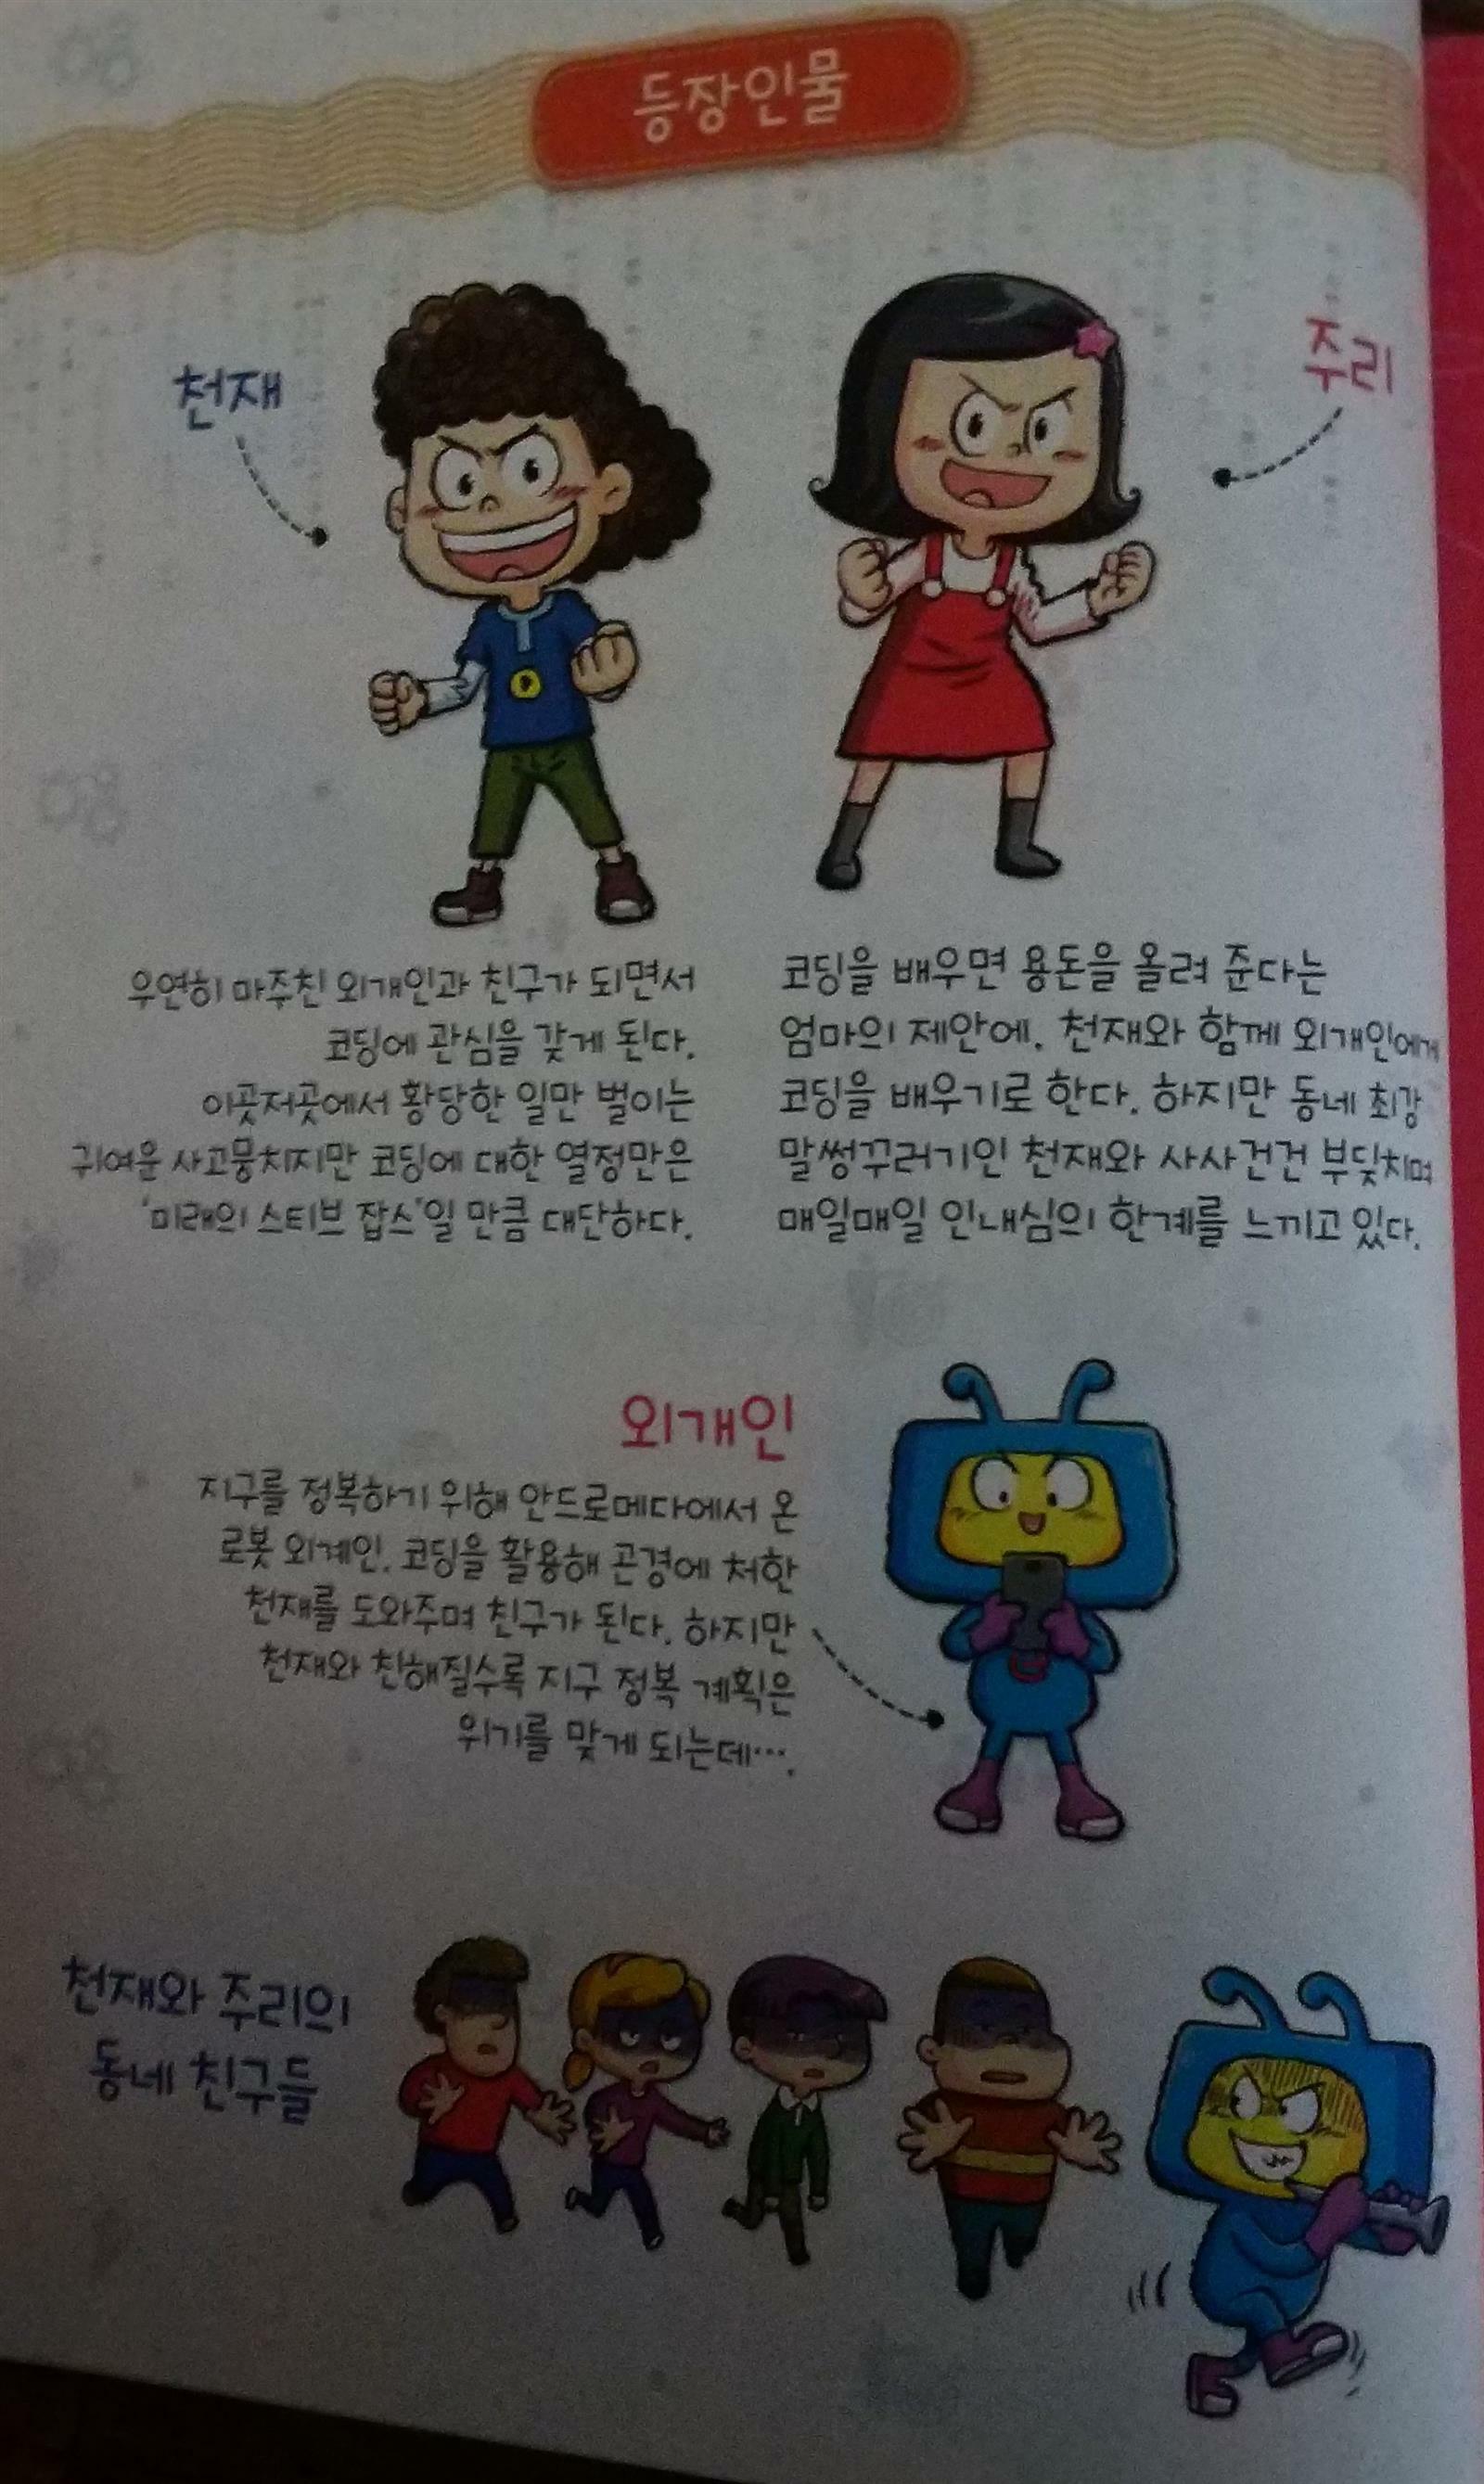 등장인물
천재
우연히 마주친 외개인과 친구가 되면서
코딩에 관심을 갖게 된다.
이곳저곳에서 황당한 일만 벌이는
귀여운 사고뭉치지만 코딩에 대한 열정만은
'미래의 스티브 잡스'일 만큼 대단하다.
주리
코딩을 배우면 용돈을 올려 준다는
엄마의 제안에, 천재와 함께 외개인에게
코딩을 배우기로 한다. 하지만 동네 최강
말썽꾸러기인 천재와 사사건건 부딪치며
매일매일 인내심의 한계를 느끼고 있다.
외개인
지구를 정복하기 위해 안드로메다에서 온
로봇 외계인. 코딩을 활용해 곤경에 처한
천재를 도와주며 친구가 된다. 하지만
천재와 친해질수록 지구 정복 계획은
위기를 맞게 되는데….
천재와 주리의
동네 친구들